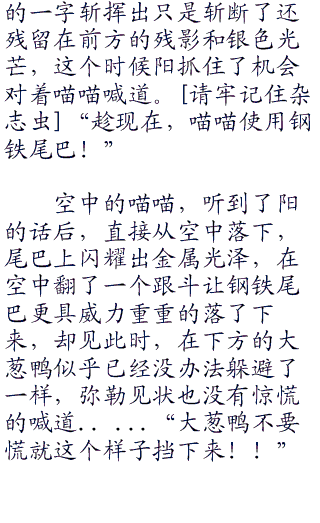 的一字斩挥出只是斩断了还
残留在前方的残影和银色光
芒，这个时候阳抓住了机会
对着喵喵喊道。[请牢记住杂
志虫]“趁现在，喵喵使用钢
铁尾巴！”
空中的喵喵，听到了阳
的话后，直接从空中落下，
尾巴上闪耀出金属光泽，在
空中翻了一个跟斗让钢铁尾
巴更具威力重重的落了下
来，却见此时，在下方的大
葱鸭似乎已经没办法躲避了
一样，弥勒见状也没有惊慌
的喊道．．．．．“大葱鸭不要
慌就这个样子挡下来！！”